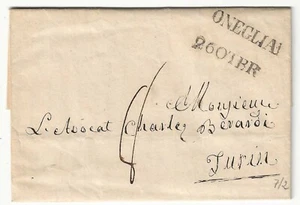 ONEGLIA
26 OTBRE
à Monsieur
L'Avocat Charles Bérardi
Turin
7/2